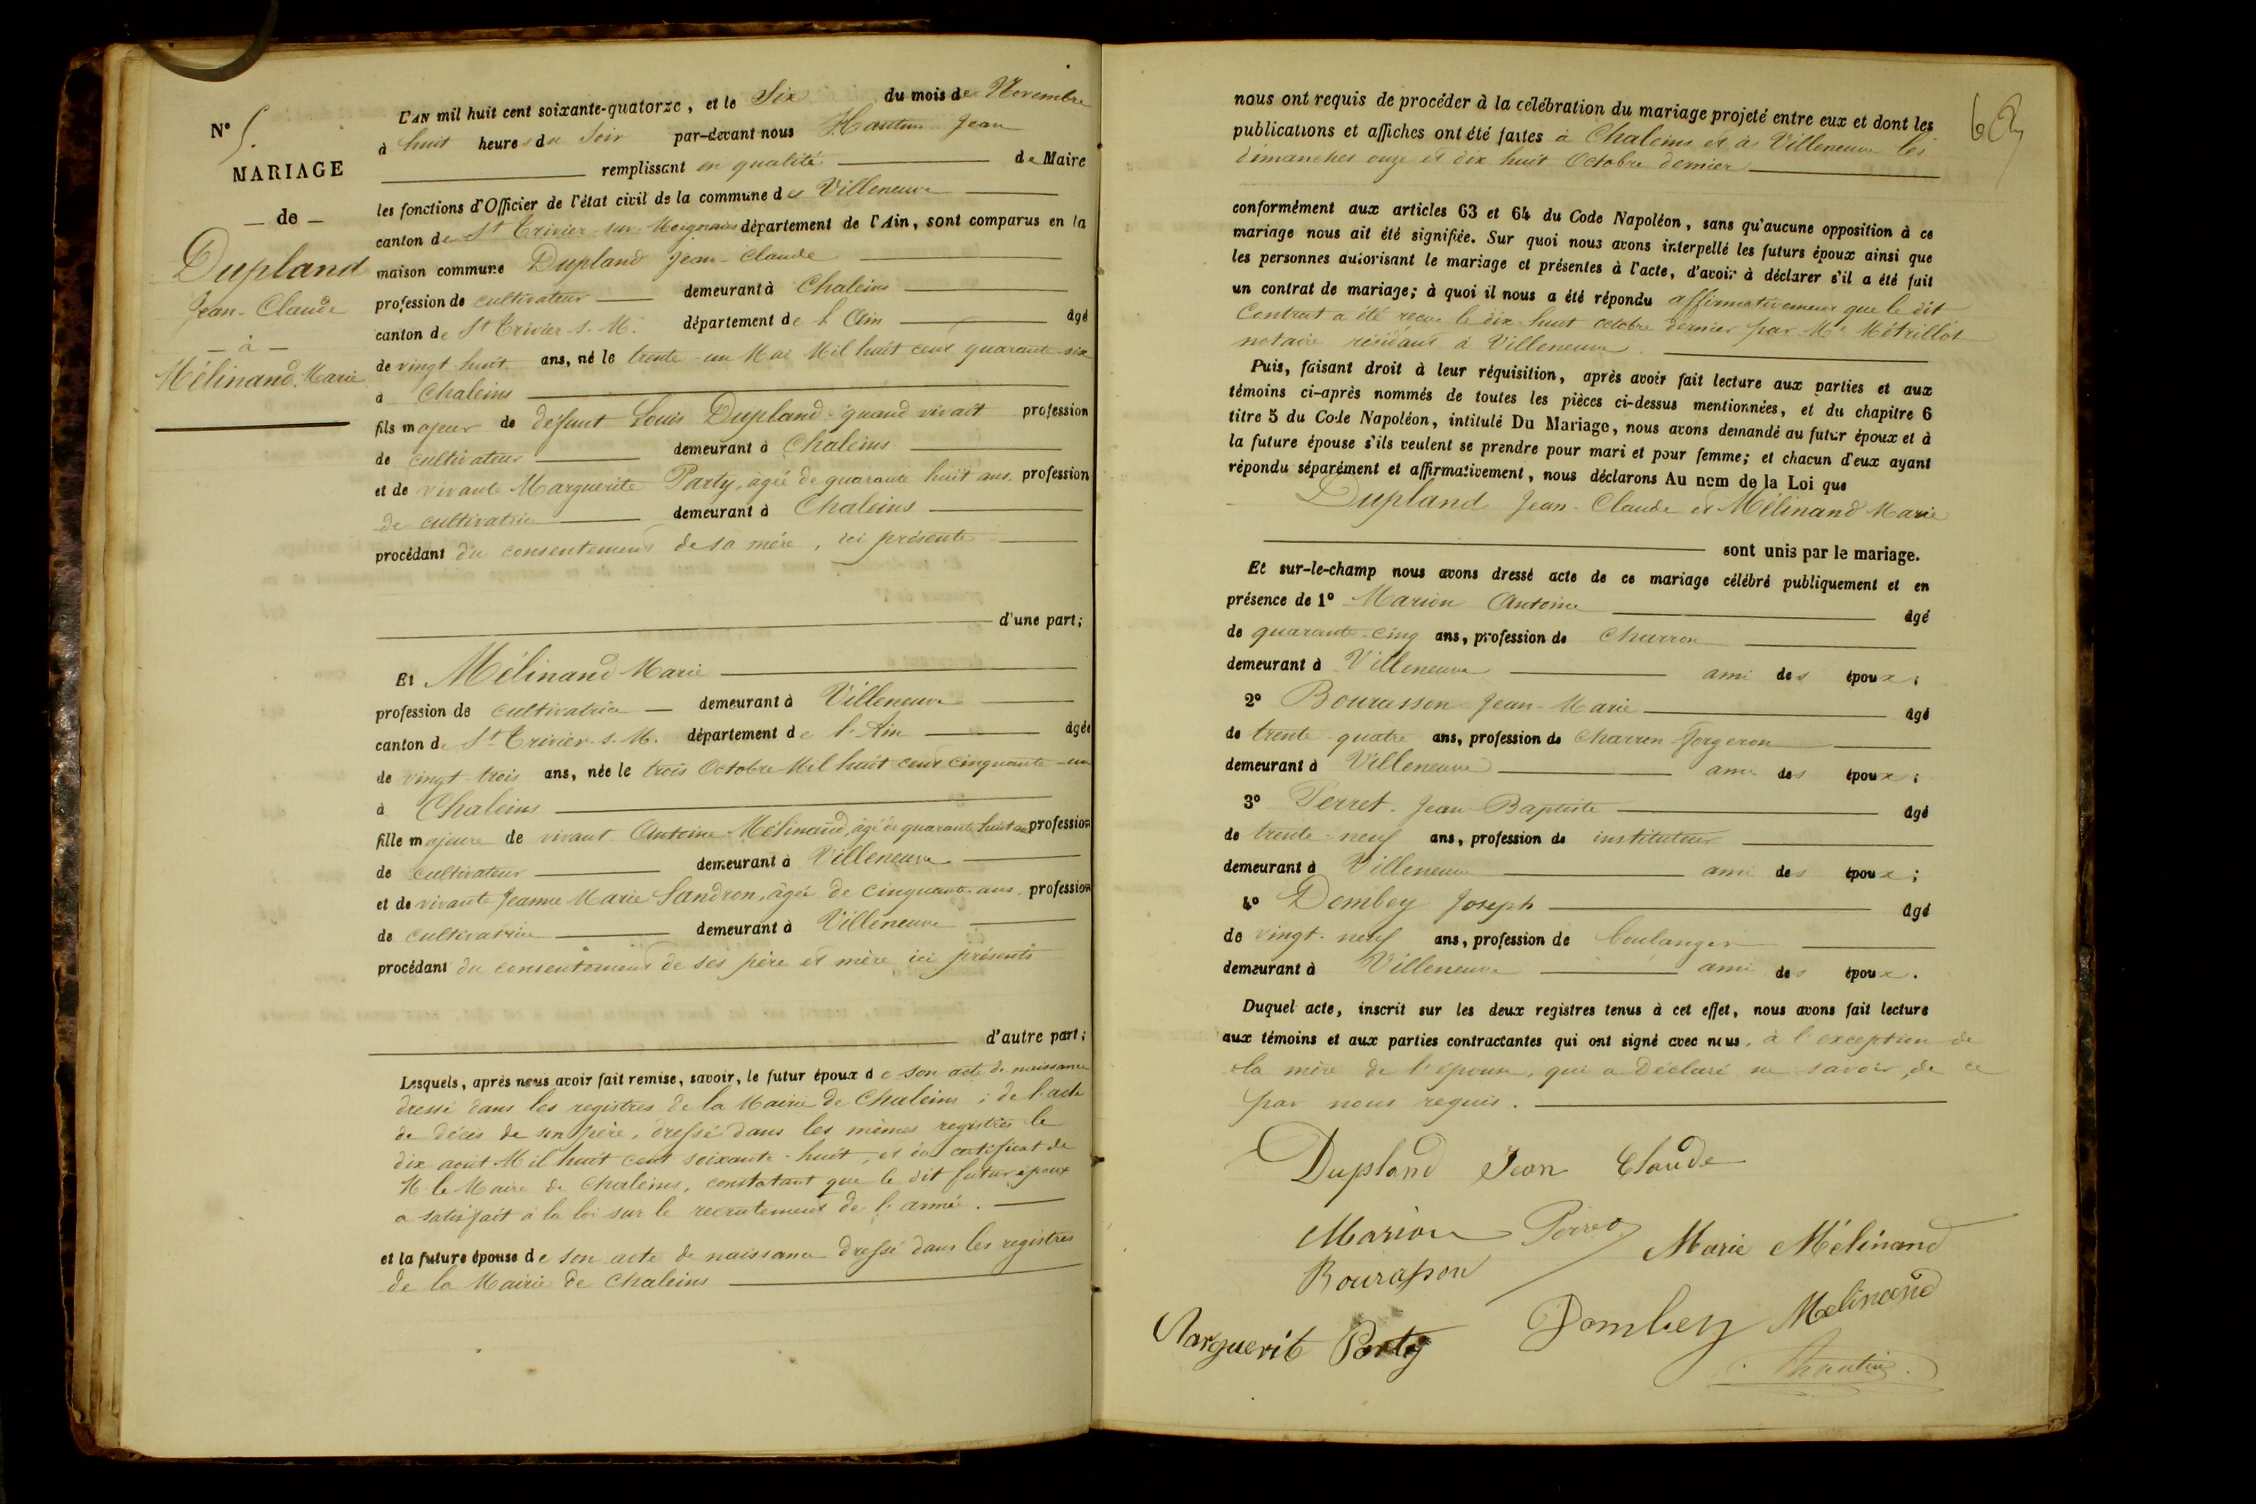 N° 5.
MARIAGE
— de —
Dupland
Jean-Claude
— à —
Mélinand Marie
L'AN mil huit cent soixante-quatorze, et le Six du mois de Novembre
à huit heures du Soir par-devant nous Jean
remplissant en qualité de Maire
les fonctions d'Officier de l'état civil de la commune de Villeneuve
canton de St Trivier-sur-Moignans département de l'Ain, sont comparus en la
maison commune Dupland Jean-Claude
profession de cultivateur demeurant à Chaleins
canton de St Trivier-s.-M. département de l'Ain âgé
de vingt huit ans, né le trente-un Mai Mil huit cent quarante-six
à Chaleins
fils majeur de défunt Louis Dupland quand vivait profession
de cultivateur demeurant à Chaleins
et de vivante Marguerite Party, âgée de quarante huit ans. profession
de cultivatrice demeurant à Chaleins
procédant du consentement de sa mère, ici présente
d'une part;
Et Mélinand Marie
profession de cultivatrice demeurant à Villeneuve
canton de St Trivier-s.-M. département de l'Ain âgée
de vingt-trois ans, née le trois Octobre Mil huit cent cinquante-un
à Chaleins
fille majeure de vivant Antoine Mélinand, âgé de quarante huit ans profession
de cultivateur demeurant à Villeneuve
et de vivante Jeanne Marie Sandron, âgée de cinquante ans. profession
de cultivatrice demeurant à Villeneuve
procédant du consentement de ses père et mère ici présents
d'autre part;
Lesquels, après nous avoir fait remise, savoir, le futur époux de son acte de naissance
dressé dans les registres de la Mairie de Chaleins; de l'acte
de décès de son père, dressé dans les mêmes registres le
dix août Mil huit cent soixante-huit, et du certificat de
M. le Maire de Chaleins, constatant que le dit futur époux
a satisfait à la loi sur le recrutement de l'armée.
et la future épouse de son acte de naissance dressé dans les registres
de la Mairie de Chaleins
nous ont requis de procéder à la célébration du mariage projeté entre eux et dont les
publications et affiches ont été faites à Chaleins et à Villeneuve les
dimanches onze et dix huit Octobre dernier
conformément aux articles 63 et 64 du Code Napoléon, sans qu'aucune opposition à ce
mariage nous ait été signifiée. Sur quoi nous avons interpellé les futurs époux ainsi que
les personnes autorisant le mariage et présentes à l'acte, d'avoir à déclarer s'il a été fait
un contrat de mariage; à quoi il nous a été répondu affirmativement que le dit
Contrat a été reçu le dix-huit octobre dernier par Me Métrillot
notaire résidant à Villeneuve.
Puis, faisant droit à leur réquisition, après avoir fait lecture aux parties et aux
témoins ci-après nommés de toutes les pièces ci-dessus mentionnées, et du chapitre 6
titre 5 du Code Napoléon, intitulé Du Mariage, nous avons demandé au futur époux et à
la future épouse s'ils veulent se prendre pour mari et pour femme; et chacun d'eux ayant
répondu séparément et affirmativement, nous déclarons Au nom de la Loi que
Dupland Jean-Claude et Mélinand Marie
sont unis par le mariage.
Et sur-le-champ nous avons dressé acte de ce mariage célébré publiquement et en
présence de 1° Marion Antoine âgé
de quarante-cinq ans, profession de Charron
demeurant à Villeneuve ami des époux;
2° Bourasson Jean-Marie âgé
de trente-quatre ans, profession de Charron-forgeron
demeurant à Villeneuve ami des époux;
3° Perret Jean Baptiste âgé
de trente-neuf ans, profession de instituteur
demeurant à Villeneuve ami des époux;
4° Dombey Joseph âgé
de vingt-neuf ans, profession de boulanger
demeurant à Villeneuve ami des époux.
Duquel acte, inscrit sur les deux registres tenus à cet effet, nous avons fait lecture
aux témoins et aux parties contractantes qui ont signé avec nous, à l'exception de
la mère de l'épouse, qui a déclaré ne savoir, de ce
par nous requis.
Dupland Jean Claude
Marion Perret Marie Mélinand
Bourasson
Marguerit Party Dombey Melinand